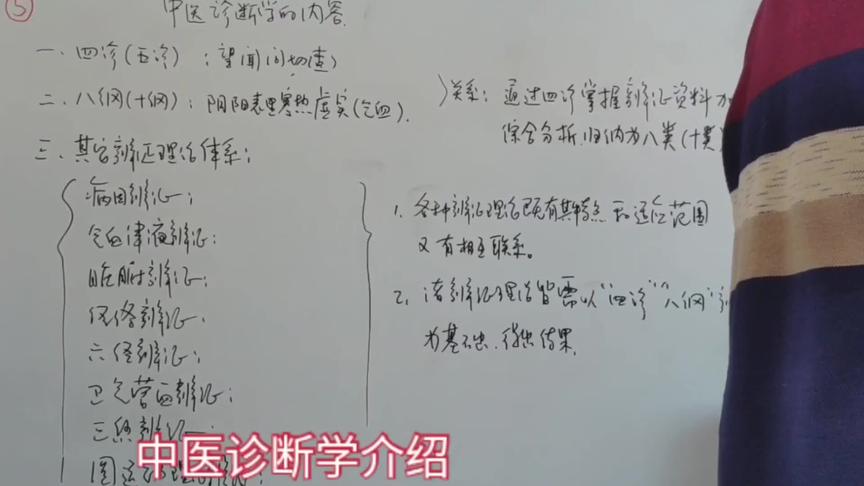 ⑤ 中医诊断学的内容
一、四诊(五诊):望闻问切(查)
二、八纲(十纲):阴阳表里寒热虚实(气血).
三、其它辨证理论体系:
病因辨证;
气血津液辨证;
脏腑辨证;
经络辨证.
六经辨证;
卫气营血辨证;
三焦辨证
圆运
关系:通过四诊掌握辨证资料加
综合分析.归纳为八类(十类)
1. 各种辨证理论既有其特点和适应范围
又有相互联系。
2. 诸辨证理论皆需以"四诊""八纲"
为基础.得出结果.
中医诊断学介绍